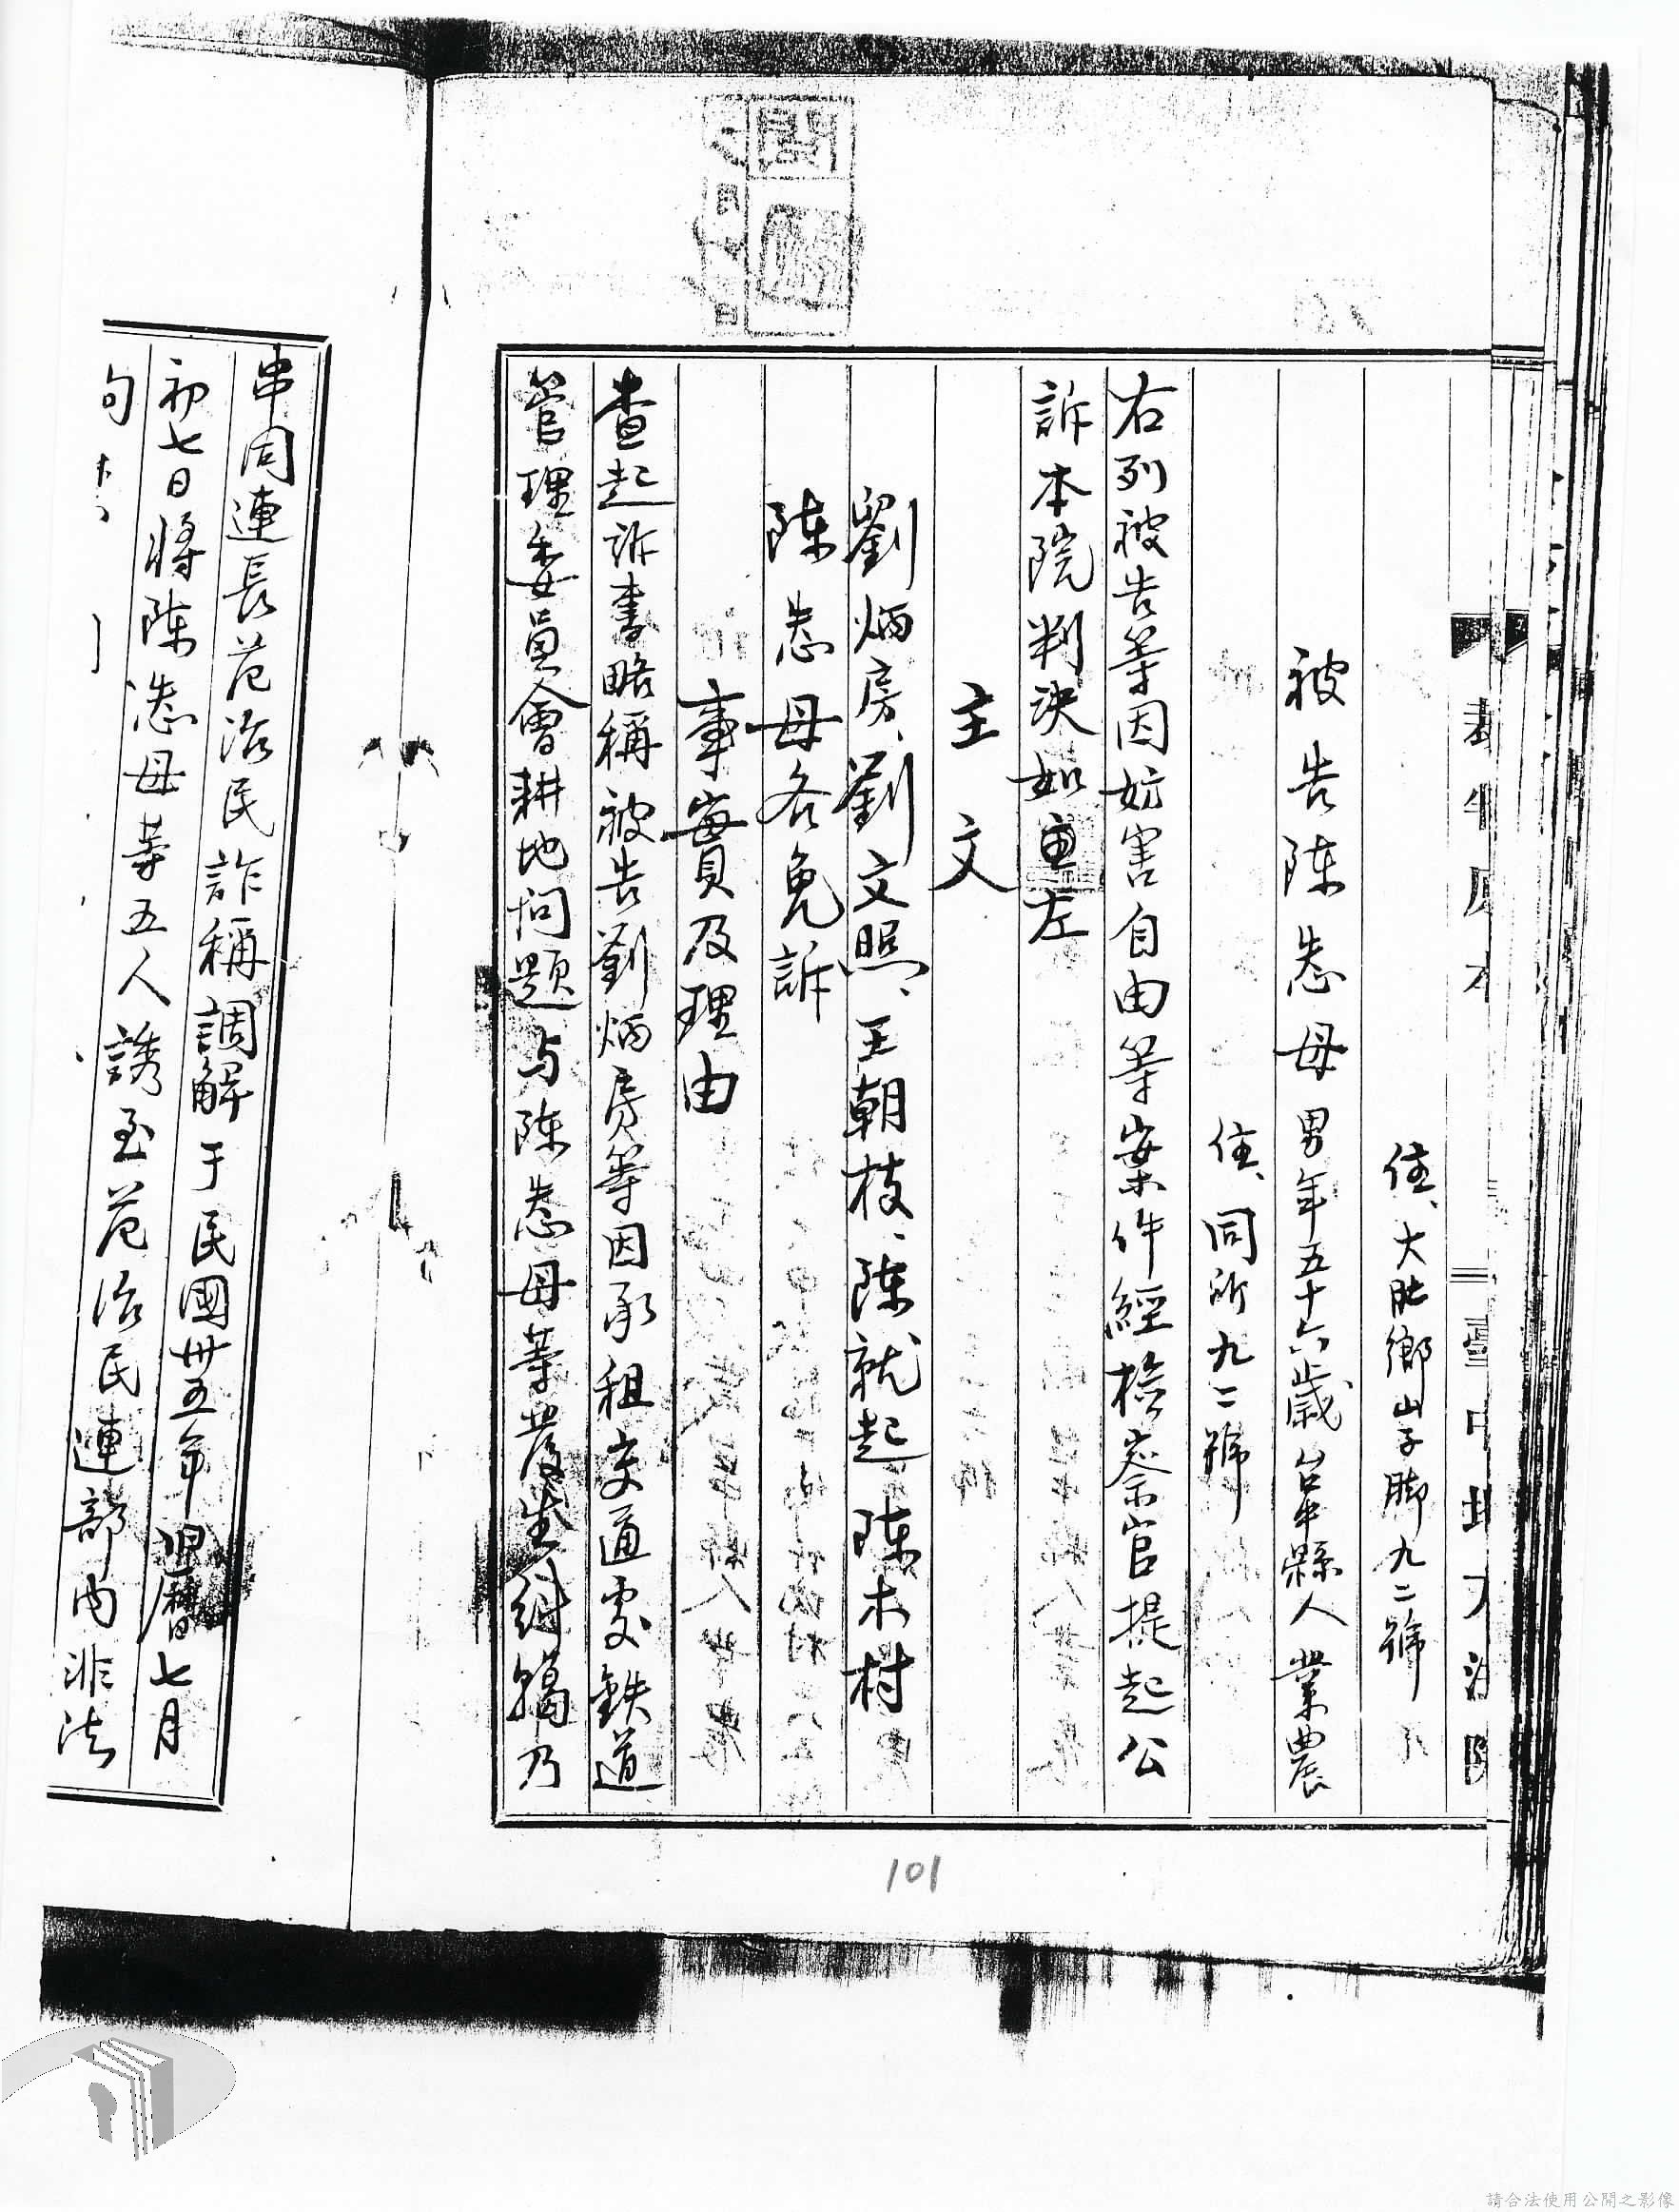 住、大肚鄉山子脚九二號
被告陳悲母男年五十六歲台中縣人業農
住、同所九二號
右列被告等因妨害自由等案件經檢察官提起公
訴本院判決如左
主文
劉炳房、劉文照、王朝枝、陳就起陳木村
陳悲母各免訴
事實及理由
查起訴書略稱被告劉炳房等因承租交通處鉄道
管理委員會耕地問題与陳悲母等發生糾葛乃
串同連長范治民詐稱調解于民國卅五年旧曆七月
初七日將陳悲母等五人誘至范治民連部內非法
101
請合法使用公開之影像